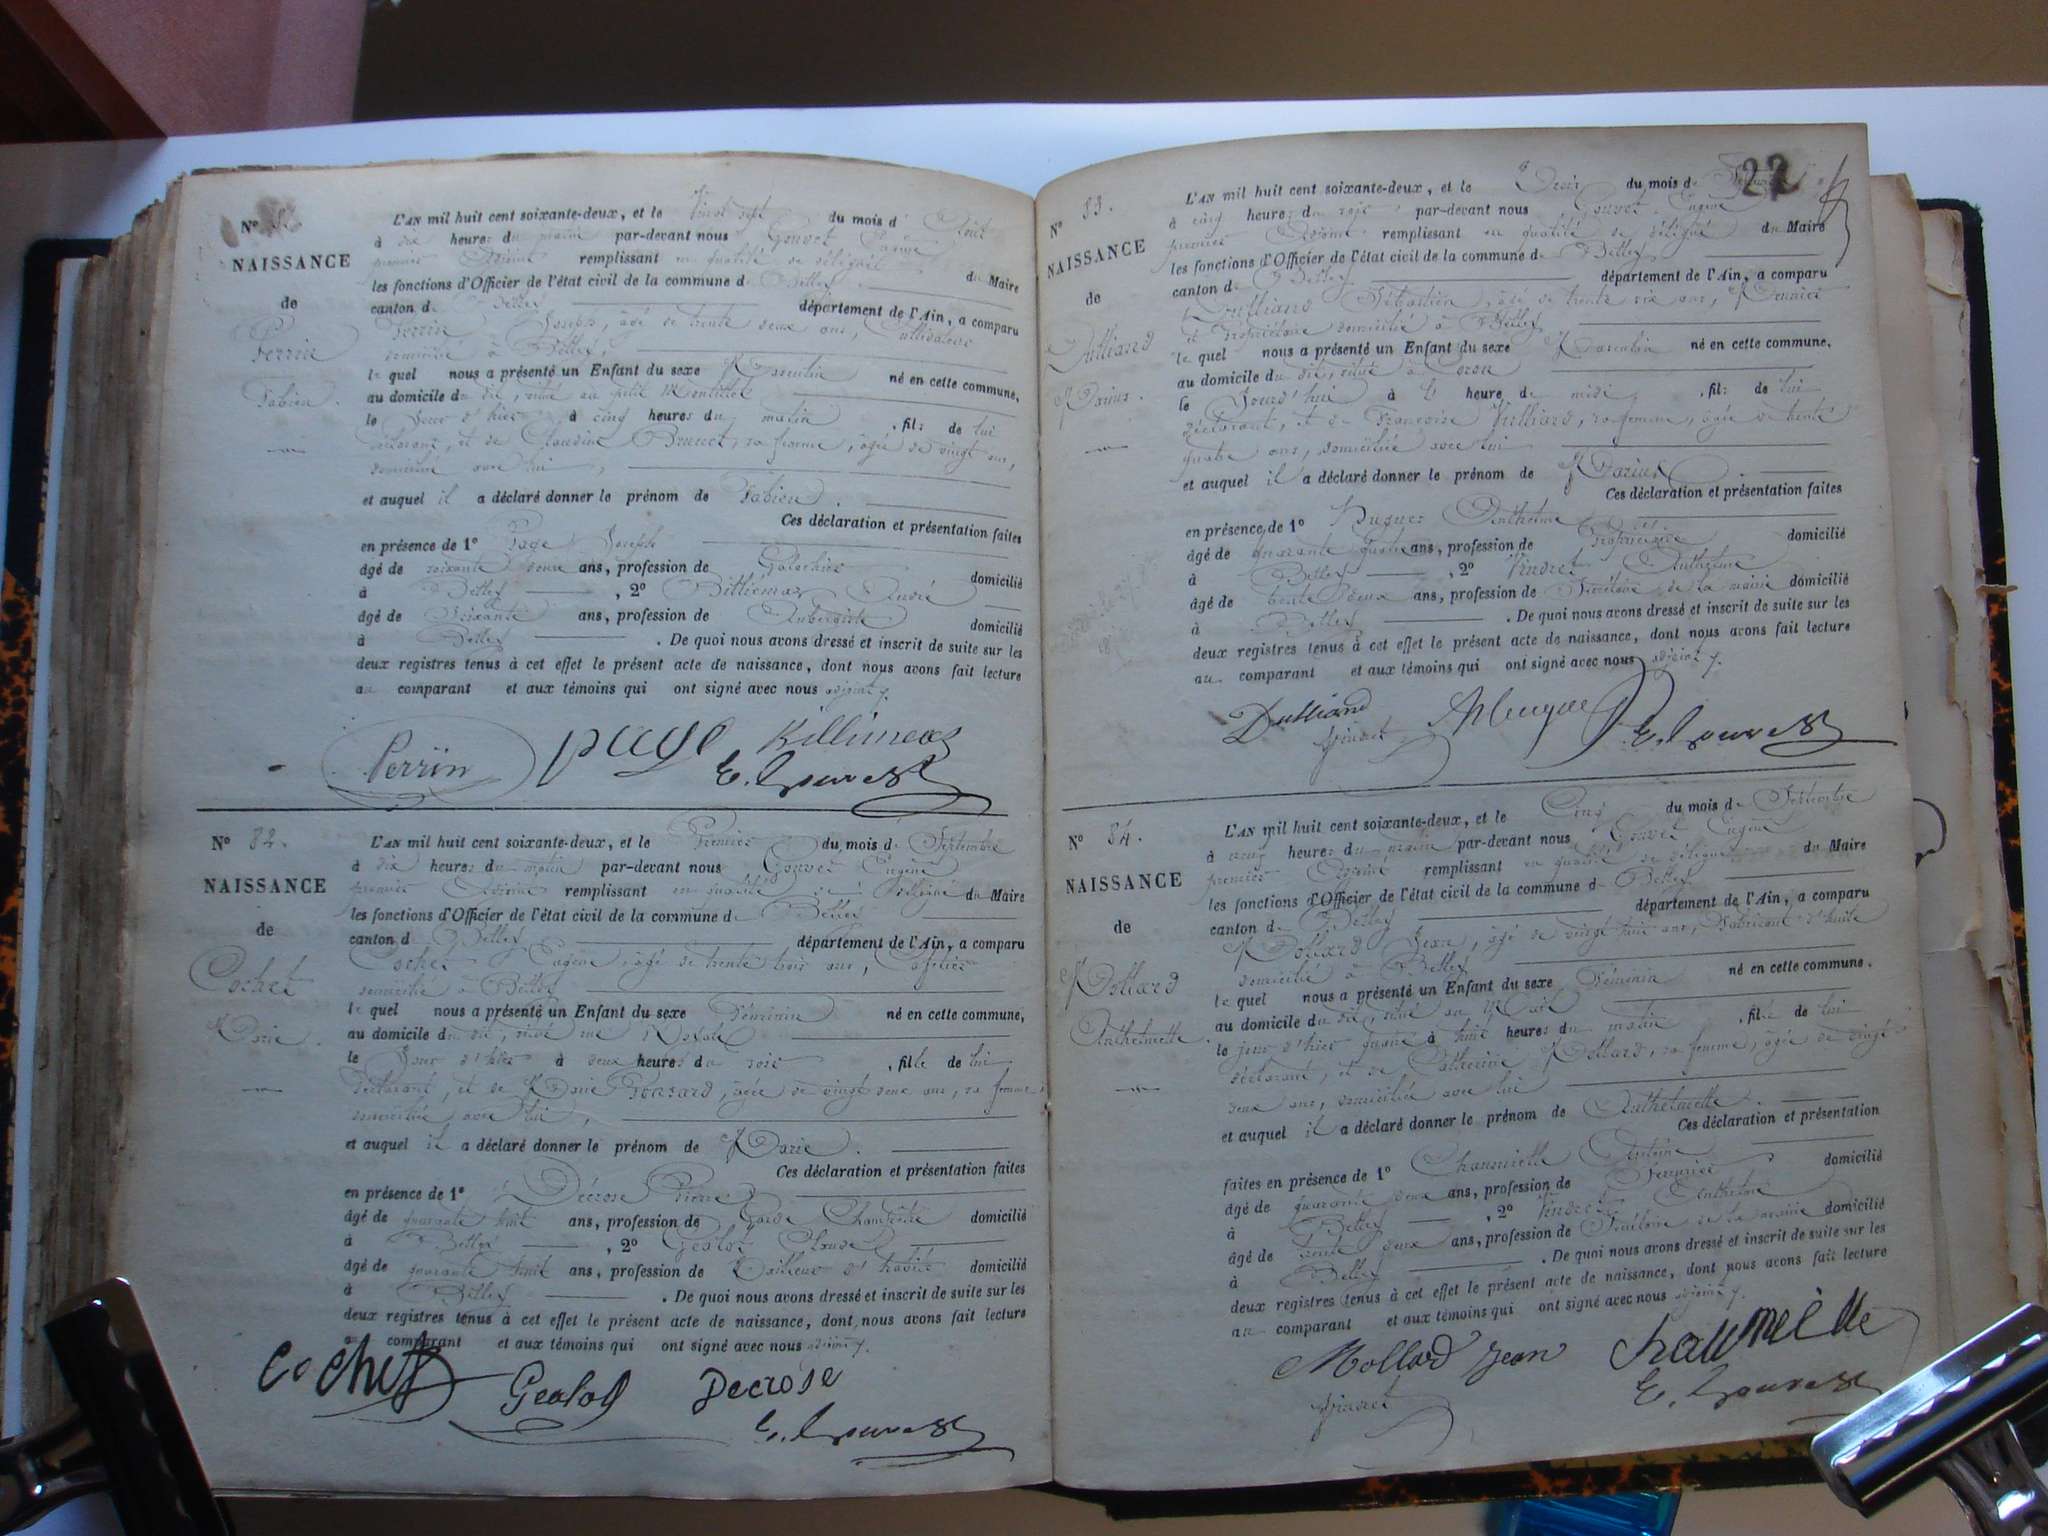 N°
NAISSANCE
de
Perrin
Fabien.
L'AN mil huit cent soixante-deux, et le vingt sept du mois d' Août
à dix heures du matin par-devant nous Gouvet Eugène
premier Adjoint remplissant en qualité de délégué du Maire
les fonctions d'Officier de l'état civil de la commune de Belley
canton de Belley département de l'Ain, a comparu
Perrin Joseph, âgé de trente deux ans,
domicilié à Belley,
lequel nous a présenté un Enfant du sexe Masculin né en cette commune,
au domicile du dit, situé au petit
le Jour d'hier à cinq heures du matin, fils de lui
déclarant, et de Claudine Brunet, sa femme, âgée de vingt ans,
domiciliée avec lui,
et auquel il a déclaré donner le prénom de Fabien.
Ces déclaration et présentation faites
en présence de 1° Page Joseph
âgé de soixante douze ans, profession de Galochier domicilié
à Belley, 2° Billiémaz André
âgé de soixante ans, profession de Aubergiste domicilié
à Belley. De quoi nous avons dressé et inscrit de suite sur les
deux registres tenus à cet effet le présent acte de naissance, dont nous avons fait lecture
au comparant et aux témoins qui ont signé avec nous adjoint
Perrin page Billiemaz
E. Gouvet
N° 82.
NAISSANCE
de
Cochet
Marie.
L'AN mil huit cent soixante-deux, et le Premier du mois de Septembre
à dix heures du matin par-devant nous Gouvet Eugène
premier Adjoint remplissant en qualité de délégué du Maire
les fonctions d'Officier de l'état civil de la commune de Belley
canton de Belley département de l'Ain, a comparu
Cochet Eugène, âgé de trente trois ans, Cafetier
domicilié à Belley
lequel nous a présenté un Enfant du sexe Féminin né en cette commune,
au domicile du dit, situé rue
le Jour d'hier à deux heures du soir, fille de lui
déclarant, et de Marie Ronsard, âgée de vingt deux ans, sa femme,
domiciliée avec lui,
et auquel il a déclaré donner le prénom de Marie.
Ces déclaration et présentation faites
en présence de 1° Décrose Pierre
âgé de quarante huit ans, profession de Garde Champêtre domicilié
à Belley, 2° Gealot Claude
âgé de quarante huit ans, profession de Tailleur d'habits domicilié
à Belley. De quoi nous avons dressé et inscrit de suite sur les
deux registres tenus à cet effet le présent acte de naissance, dont nous avons fait lecture
au comparant et aux témoins qui ont signé avec nous adjoint
Cochet Gealot Decrose
E. Gouvet
22
N° 83.
NAISSANCE
de
Dulliand
Marius.
L'AN mil huit cent soixante-deux, et le Trois du mois de
à cinq heures du soir par-devant nous Gouvet Eugène
premier Adjoint remplissant en qualité de délégué du Maire
les fonctions d'Officier de l'état civil de la commune de Belley
canton de Belley département de l'Ain, a comparu
Dulliand Sébastien, âgé de trente six ans,
et Propriétaire domicilié à Belley
lequel nous a présenté un Enfant du sexe Masculin né en cette commune,
au domicile du dit, situé à Coron
le Jourd'hui à l' heure de midi, fils de lui
déclarant, et de Françoise Vulliard, sa femme, âgée de trente
quatre ans, domiciliée avec lui
et auquel il a déclaré donner le prénom de Marius.
Ces déclaration et présentation faites
en présence de 1° Hugues Anthelme
âgé de quarante quatre ans, profession de Propriétaire domicilié
à Belley, 2° Vindret Anthelme
âgé de trente deux ans, profession de Secrétaire de la mairie domicilié
à Belley. De quoi nous avons dressé et inscrit de suite sur les
deux registres tenus à cet effet le présent acte de naissance, dont nous avons fait lecture
au comparant et aux témoins qui ont signé avec nous adjoint
Dulliand
Vindret E. Gouvet
N° 84.
NAISSANCE
de
Mollard
Anthelmette.
L'AN mil huit cent soixante-deux, et le Cinq du mois de Septembre
à heures du matin par-devant nous Gouvet Eugène
premier Adjoint remplissant en qualité de délégué du Maire
les fonctions d'Officier de l'état civil de la commune de Belley
canton de Belley département de l'Ain, a comparu
Mollard Jean, âgé de vingt huit ans, Fabricant d'huile
domicilié à Belley
lequel nous a présenté un Enfant du sexe Féminin né en cette commune.
au domicile du dit, situé au Mail
le jour d'hier quatre à huit heures du matin, fille de lui
déclarant, et de Catherine Mollard, sa femme, âgée de vingt
deux ans, domiciliée avec lui
et auquel il a déclaré donner le prénom de Anthelmette.
Ces déclaration et présentation
faites en présence de 1° Chaumelle Antoine
âgé de quarante deux ans, profession de domicilié
à Belley, 2° Vindret Anthelme
âgé de trente deux ans, profession de Secrétaire de la mairie domicilié
à Belley. De quoi nous avons dressé et inscrit de suite sur les
deux registres tenus à cet effet le présent acte de naissance, dont nous avons fait lecture
au comparant et aux témoins qui ont signé avec nous adjoint
Mollard Jean chaumelle
Vindret E. Gouvet